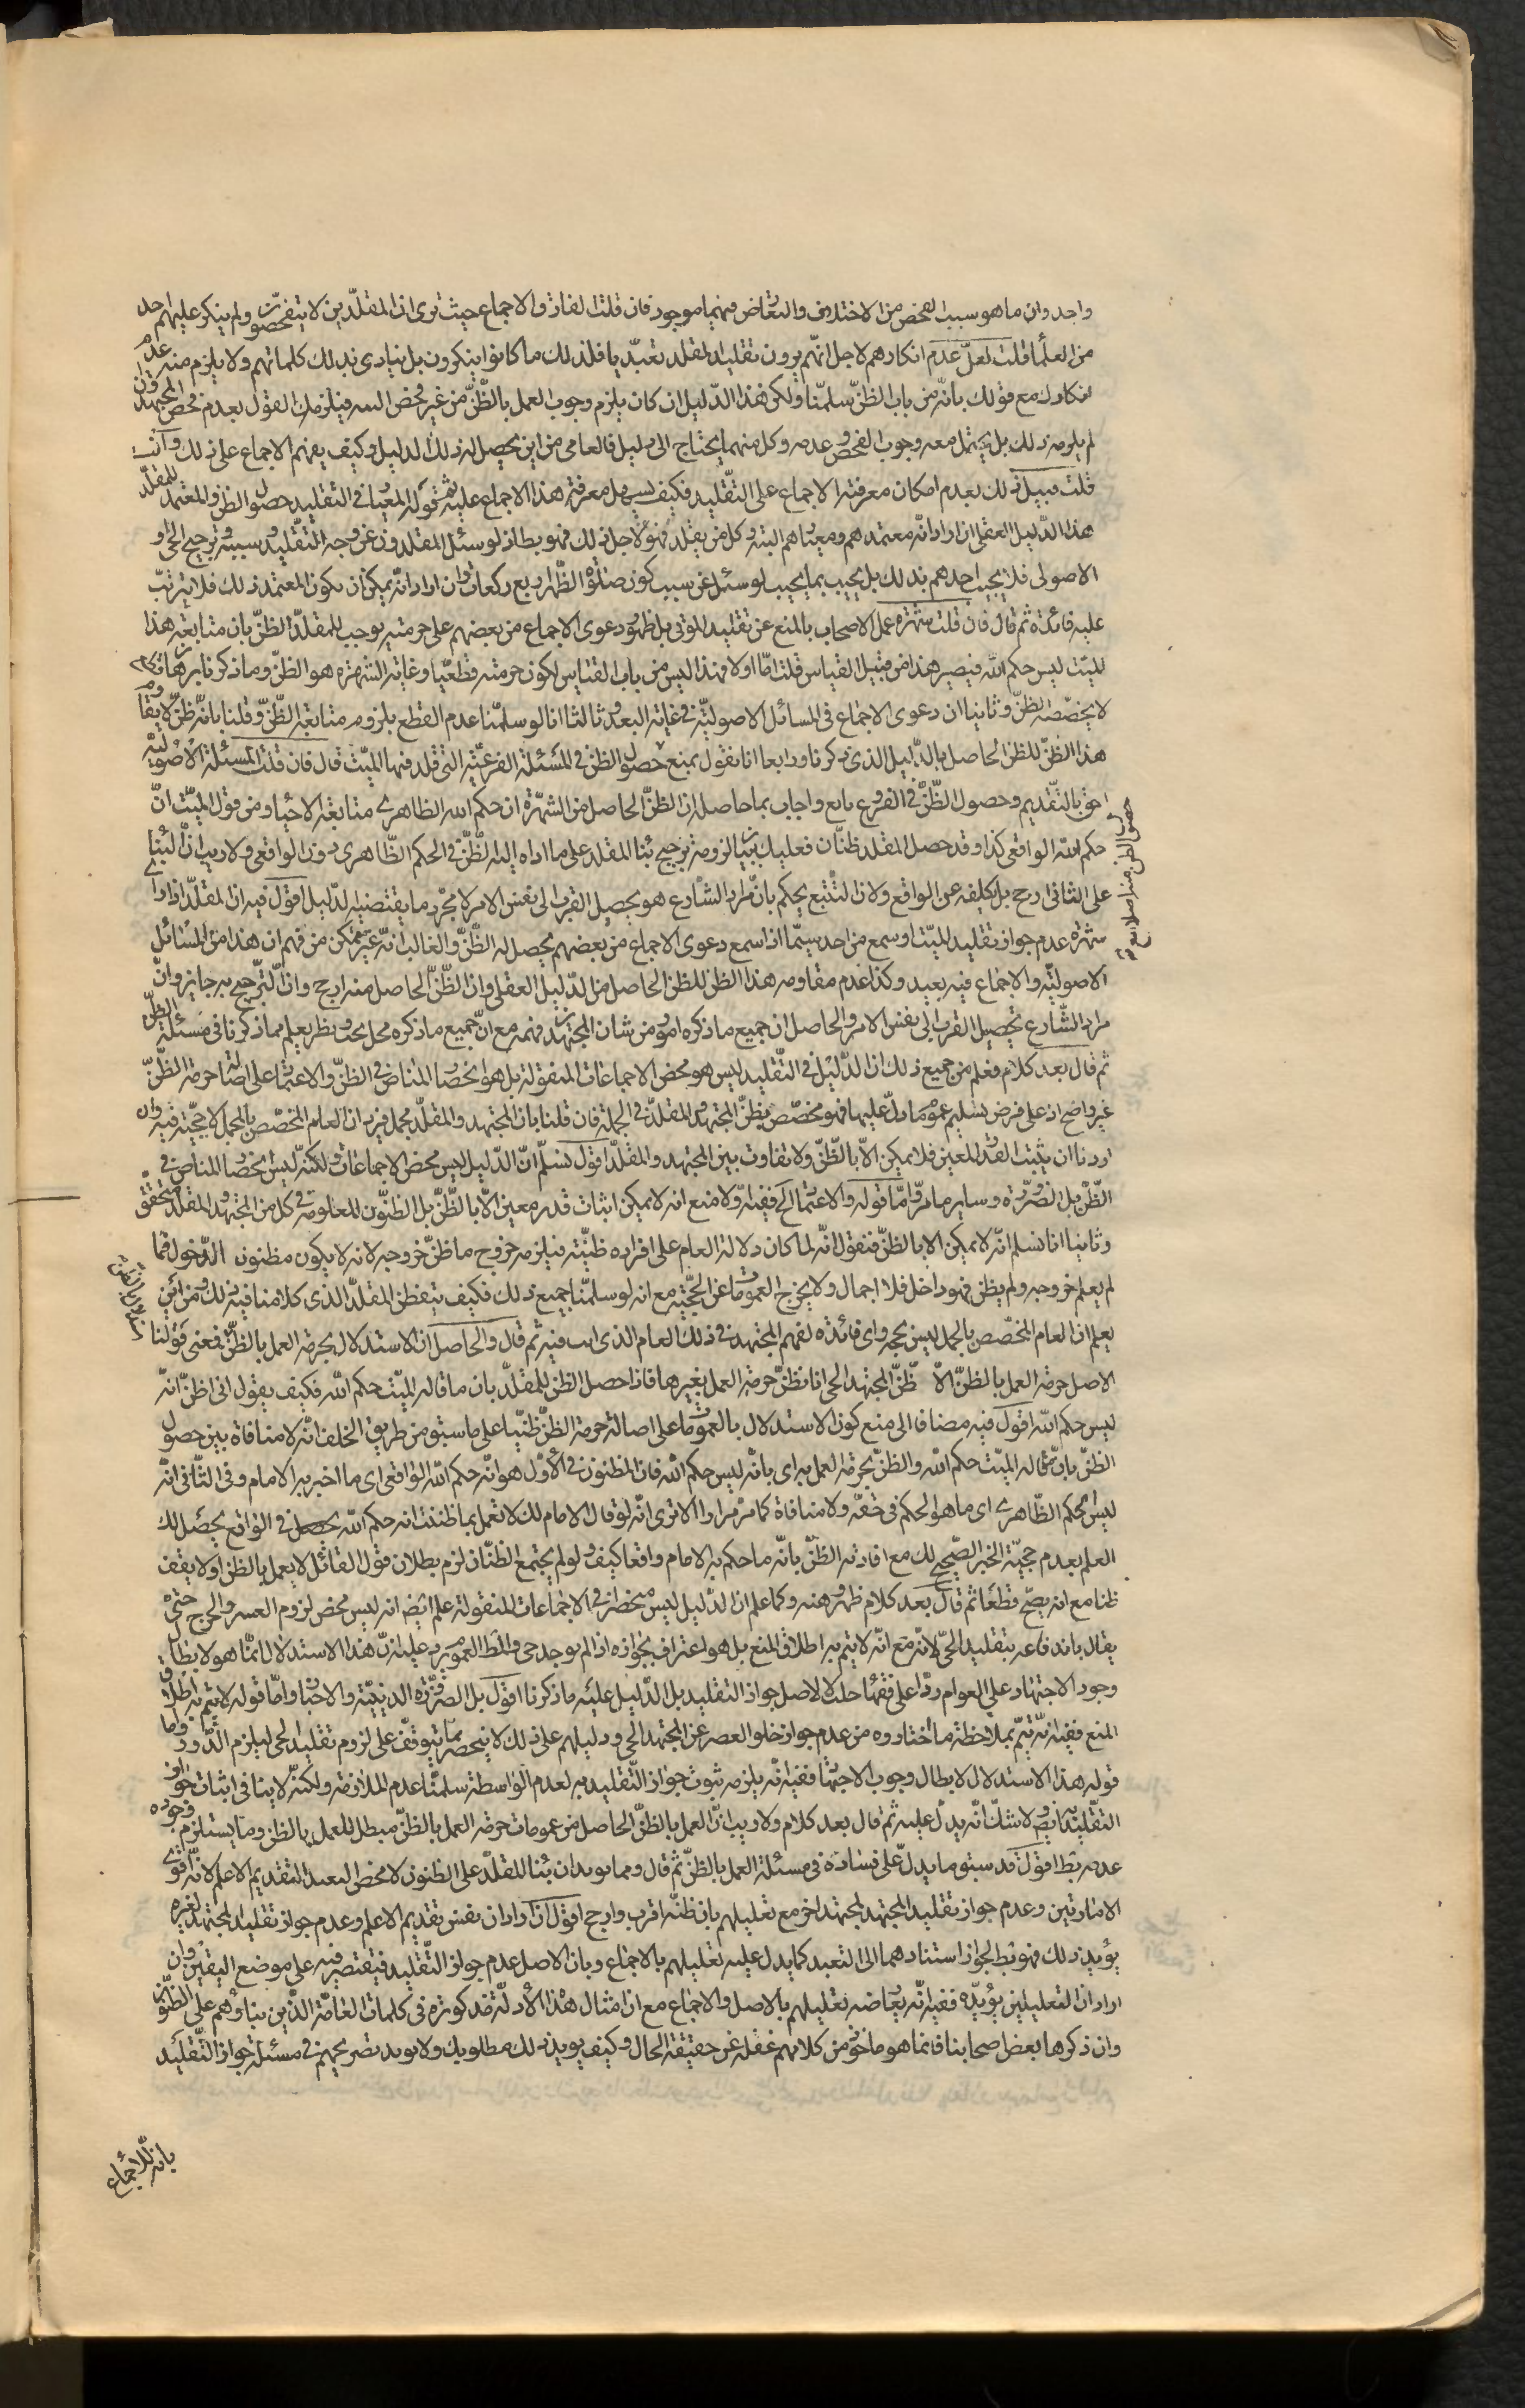 واحد وان ما هو سبب الفحص من الاختلاف والتعارض فيهما موجود فان قلت الفارق الاجماع حيث نرى ان المقلدين لا يتفحصون ولم ينكر عليهم احد
من العلماء قلت لعل عدم انكارهم لاجل انهم يرون تقليد المقلد تعبديا فلذلك ما كانوا ينكرون بل ينادى بذلك كلماتهم ولا يلزم منه عدم
انكارك مع قولك بانه من باب الظن سلمنا ولكن هذا الدليل ان كان يلزم وجوب العمل بالظن من غير فحص فيلزمك القول بعدم فحص المجتهد وان
لم يلزمه ذلك بل يحتمل معه وجوب الفحص وعدمه وكل منهما يحتاج الى دليل فالعامى من اين يحصل له ذلك الدليل وكيف يفهم الاجماع على ذلك وانت
قلت قبيل ذلك بعدم امكان معرفته الاجماع على التقليد فكيف يسهل معرفة هذا الاجماع عليه ثم قوله المعيار فى التقليد حصول الظن والمعتمد للمقلد
هذا الدليل العقلى ان اراد انه معتمدهم ومعيارهم البتة وكل من يقلد فهو لاجل ذلك فهو بط اذ لو سئل المقلدون عن وجه التقليد وسببه وترجيح الحى او
الاصولى فلا يجيب احدهم بذلك بل يجيب بما يجيب لو سئل عن سبب كون صلوة الظهر اربع ركعات وان اراد انه يمكن ان يكون المعتمد ذلك فلا يترتب
عليه فائدة ثم قال فان قلت شهرة عمل الاصحاب بالمنع عن تقليد الموتى بل ظهور دعوى الاجماع من بعضهم على حرمته يوجب للمقلد الظن بان متابعة هذا
الميت ليس حكم الله فيصير هذا من قبيل القياس قلت اما اولا فهذا ليس من باب القياس لكون حرمته قطعيا وغاية الشهرة هو الظن وما ذكرنا برهان
لا يخصصه الظن وثانيا ان دعوى الاجماع فى المسائل الاصولية فى غاية البعد وثالثا انا لو سلمنا عدم القطع بلزوم متابعة الظن وقلنا بانه ظن لا يقاوم
هذا الظن للظن الحاصل بالدليل الذى ذكرنا ورابعا انا نقول بمنع حصول الظن فى المسئلة الفرعية التى قلد فيها الميت قال فان قلت المسئلة الاصولية
احق بالتقديم وحصول الظن فى الفروع تابع واجاب بما حاصله ان الظن الحاصل من الشهرة ان حكم الله الظاهرى متابعة الاحياء ومن قول الميت ان
حكم الله الواقعى كذا وقد حصل المقلد ظنان فعليك بيان لزومه ترجيح بناء المقلد على ما اداه اليه الظن فى الحكم الظاهرى دون الواقعى ولا ريب ان البناء
على الثانى ارجح بل تكليفه عن الواقع ولان التتبع يحكم بان مراد الشارع هو تحصيل القرب الى نفس الامر لا مجرد ما يقتضيه الدليل اقول فيه ان المقلد اذا رأى
شهرة عدم جواز تقليد الميت او سمع من احد سيما اذا سمع دعوى الاجماع من بعضهم يحصل له الظن والغالب انه غير متمكن من فهم ان هذا من المسائل
الاصولية والاجماع فيه بعيد وكذا عدم مقاومة هذا الظن للظن الحاصل من الدليل العقلى وان الظن الحاصل منه ارجح وان الترجيح به جايز وان
مراد الشارع تحصيل القرب الى نفس الامر والحاصل ان جميع ما ذكره امور من شان المجتهد فهمه مع ان جميع ما ذكره محل بحث ونظر يعلم مما ذكرنا فى مسئلة الظن
ثم قال بعد كلام فعلم من جميع ذلك ان الدليل فى التقليد ليس هو محض الاجماعات المنقولة بل هو انحصار المناص فى الظن والاعتماد على اصالة حرمة الظن
غير واضح اذ على فرض تسليم عموم ما دل عليها فهو مخصص بظن المجتهد والمقلد فى الجملة فان قلنا بان المجتهد والمقلد مجمل فيرد ان العام المخصص بالمجمل لا حجية فيه وان
اردنا ان يثبت القدر المعين فلا يمكن الا بالظن ولا تفاوت بين المجتهد والمقلد اقول نسلم ان الدليل ليس محض الاجماعات ولكنه ليس انحصار المناص فى
الظن بل الضرورة وساير ما مر واما قوله والاعتماد الخ ففيه اولا منع انه لا يمكن اثبات قدر معين الا بالظن بل الظنون المعلومة فى كل من المجتهد والمقلد متحقق
وثانيا انا نسلم انه لا يمكن الا بالظن فنقول انه لما كان دلالة العام على افراده ظنية فيلزمه خروج ما ظن خروجه لانه لا يكون مظنون الدخول فما
لم يعلم خروجه ولم يظن فهو داخل فلا اجمال ولا يخرج العمومات عن الحجية مع انه لو سلمنا جميع ذلك فكيف يتفطن المقلد الذى كلامنا فيه لذلك ومن اين
يعلم ان العام المخصص بالمجمل ليس بحجة واى فائدة لفهم المجتهد فى ذلك العام الذى انت فيه ثم قال والحاصل ان الاستدلال بحرمة العمل بالظن فمعنى قولنا
الاصل حرمة العمل بالظن الا ظن المجتهد الحى انا نظن حرمة العمل بغيرها فاذا حصل الظن للمقلد بان ما قاله الميت حكم الله فكيف يقول انى اظن انه
ليس حكم الله اقول فيه مضافا الى منع كون الاستدلال بالعمومات على اصالة حرمة الظن ظنيا على ما سبق من طريق الخلف انه لا منافاة بين حصول
الظن بان ما قاله الميت حكم الله والظن بحرمة العمل به اى بانه ليس حكم الله فان المظنون فى الاول هو انه حكم الله الواقعى اى ما اخبر به الامام وفى الثانى انه
ليس الحكم الظاهرى اى ما هو الحكم فى حقه ولا منافاة كما مر مرارا الا ترى انه لو قال الامام لك لا تعمل بما ظننت انه حكم الله فى الواقع يحصل لك
العلم بعدم حجية الخبر الصحيح لك مع افادته الظن بانه ما حكم به الامام واقعا كيف ولو لم يجتمع الظنان لزم بطلان قول القائل لا يعمل بالظن اولا يقف
ظنا مع انه يصح قطعا ثم قال بعد كلام ظهر وهنه وكما علم ان الدليل ليس منحصرا فى الاجماعات المنقولة علم ايضا انه ليس محض لزوم العسر والحرج حتى
يقال باندفاعه بتقليد الحى لانه مع انه لا يتم به اطلاق المنع بل هو اعتراف بجوازه اذا لم يوجد حى عليه ان هذا الاستدلال انما هو لابطال
وجود الاجتهاد على العوام ردا على فقهاء حلب لا لاصل جواز التقليد بل الدليل عليه ما ذكرنا اقول بل الضرورة الدينية والاخبار واما قوله لا يتم به اطلاق
المنع ففيه انه يتم بملاحظة ما اختاروه من عدم جواز خلو العصر عن المجتهد الحى ودليلهم على ذلك لا ينحصر بما يتوقف على لزوم تقليد الحى ليلزم الدور واما
قوله هذا الاستدلال لابطال وجوب الاجتهاد ففيه انه يلزمه ثبوت جواز التقليد به لعدم الواسطة سلمنا عدم الملازمة ولكنه لا ينافى اثبات جواز
التقليد به ايضا ولا شك انه يدل عليه ثم قال بعد كلام ولا ريب ان العمل بالظن الحاصل من عمومات حرمة العمل بالظن مبطل للعمل بالظن وما يستلزم وجوده
عدمه بط اقول قد سبق ما يدل على فساده فى مسئلة العمل بالظن ثم قال ومما يويد ان بناء المقلد على الظنون لا محض التعبد تقديم الاعلم لانه اقوى
الامارتين وعدم جواز تقليد المجتهد لمجتهد اخر مع تعليلهم بان ظنه اقرب وارجح اقول ان اراد ان نفس تقديم الاعلم وعدم جواز تقليد المجتهد لغيره
يؤيد ذلك فهو بط لجواز استنادهما الى التعبد كما يدل عليه تعليلهم بالاجماع وبان الاصل عدم جواز التقليد فيقتصر فيه على موضع اليقين وان
اراد ان التعليلين يؤيده ففيه انه يعارضه تعليلهم بالاصل والاجماع مع ان امثال هذه الادلة مذكورة فى كلمات العامة الذين بناؤهم على الظنون
وان ذكرها بعض اصحابنا فانما هو ماخوذ من كلامهم غفلة عن حقيقة الحال وكيف يويد ذلك مطلوبك ولا يويد تصريحهم فى مسئلة جواز التقليد
بانه للاجماع